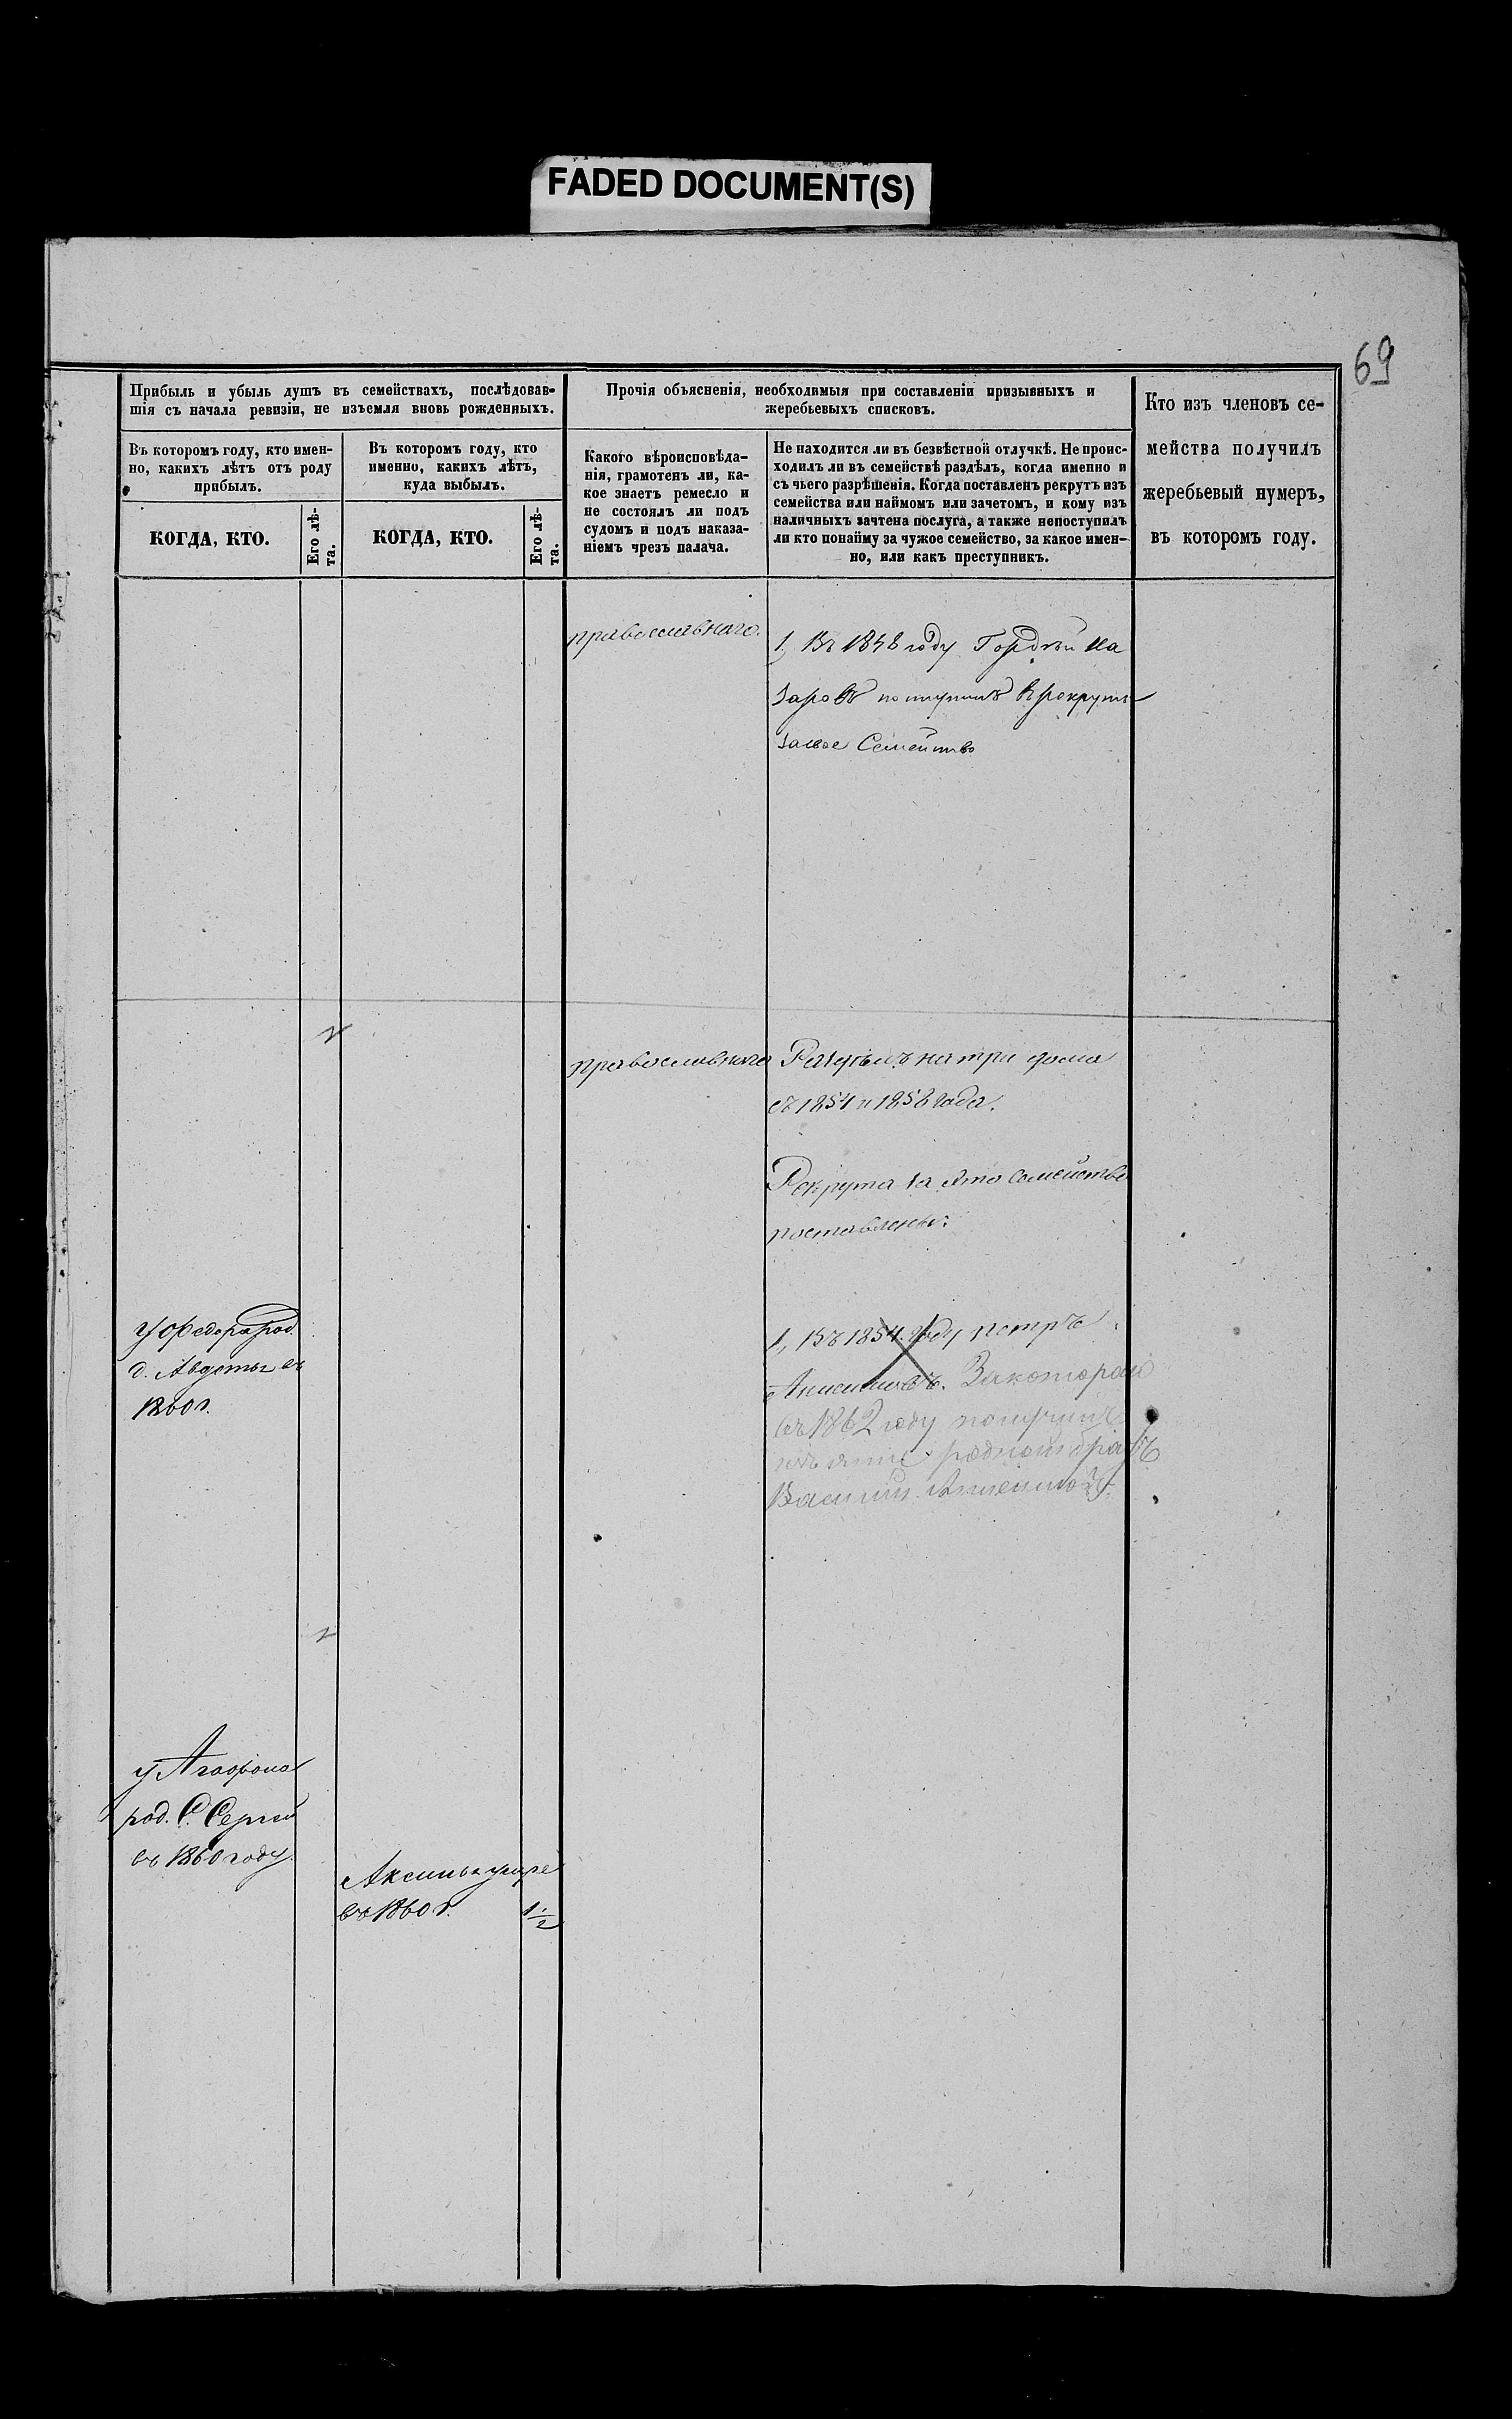 FADED DOCUMENT(S)
69
Прибыль и убыль душъ въ семействахъ, послѣдовав-
шія съ начала ревизіи, не изъемля вновь рожденныхъ.
Въ которомъ году, кто имен-
но, какихъ лѣтъ отъ роду
прибылъ.
КОГДА, КТО.
Его лѣ-
та.
Въ которомъ году, кто
именно, какихъ лѣтъ,
куда выбылъ.
КОГДА, КТО.
Его лѣ-
та.
Прочія объясненія, необходимыя при составленіи призывныхъ и
жеребьевыхъ списковъ.
Какого вѣроисповѣда-
нія, грамотенъ ли, ка-
кое знаетъ ремесло и
не состоялъ ли подъ
судомъ и подъ наказа-
ніемъ чрезъ палача.
Не находится ли въ безвѣстной отлучкѣ. Не проис-
ходилъ ли въ семействѣ раздѣлъ, когда именно и
съ чьего разрѣшенія. Когда поставленъ рекрутъ изъ
семейства или наймомъ или зачетомъ, и кому изъ
наличныхъ зачтена послуга, а также непоступилъ
ли кто понайму за чужое семейство, за какое имен-
но, или какъ преступникъ.
Кто изъ членовъ се-
мейства получилъ
жеребьевый нумеръ,
въ которомъ году.
православнаго.
1, Въ 1848 году Гордѣй На
заровъ поступилъ Врекруты
засвое Семейство
православнаго
Раздѣлъ на три дома
съ 1854 и 1858 года.
Рекрута за это семейство
поставлены:
у Федора род.
д. Авдотья въ
1860 г.
1, Въ 1854 году Петръ
Анисимовъ. Закотораго
въ 1862 году поступилъ
родной братъ
Василій Анисимовъ.
у Агафона
род. С. Сергей
въ 1860 году.
Аксинья умре
въ 1860 г.
1 1/2